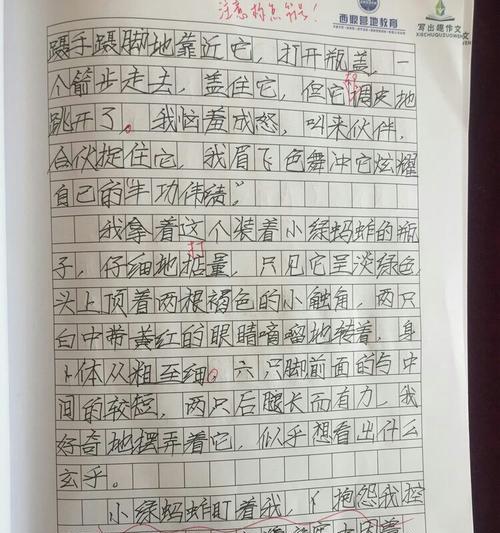 注意标点符号!
西顿营地教育
写出趣作文
XIECHUQUZUOWEN
蹑手蹑脚地靠近它，打开瓶盖，一
个箭步走去，盖住它，但它却调皮地
跳开了。我恼羞成怒，叫来伙伴，
合伙捉住它，我眉飞色舞冲它炫耀
自己的“丰功伟绩”。
我拿着这个装着小绿蚂蚱的瓶
打
子，仔细地掂量，只见它呈淡绿色，
头上顶着两根褐色的小触角，两只
白中带黄红的眼睛嘀嘀溜地转着，身
体从粗至细。六只脚前面的与中
间的较短，两只后腿长而有力，我
好奇地摆弄着它，似乎想看出什么
玄乎。
小绿蚂蚱盯着我，抱怨我控